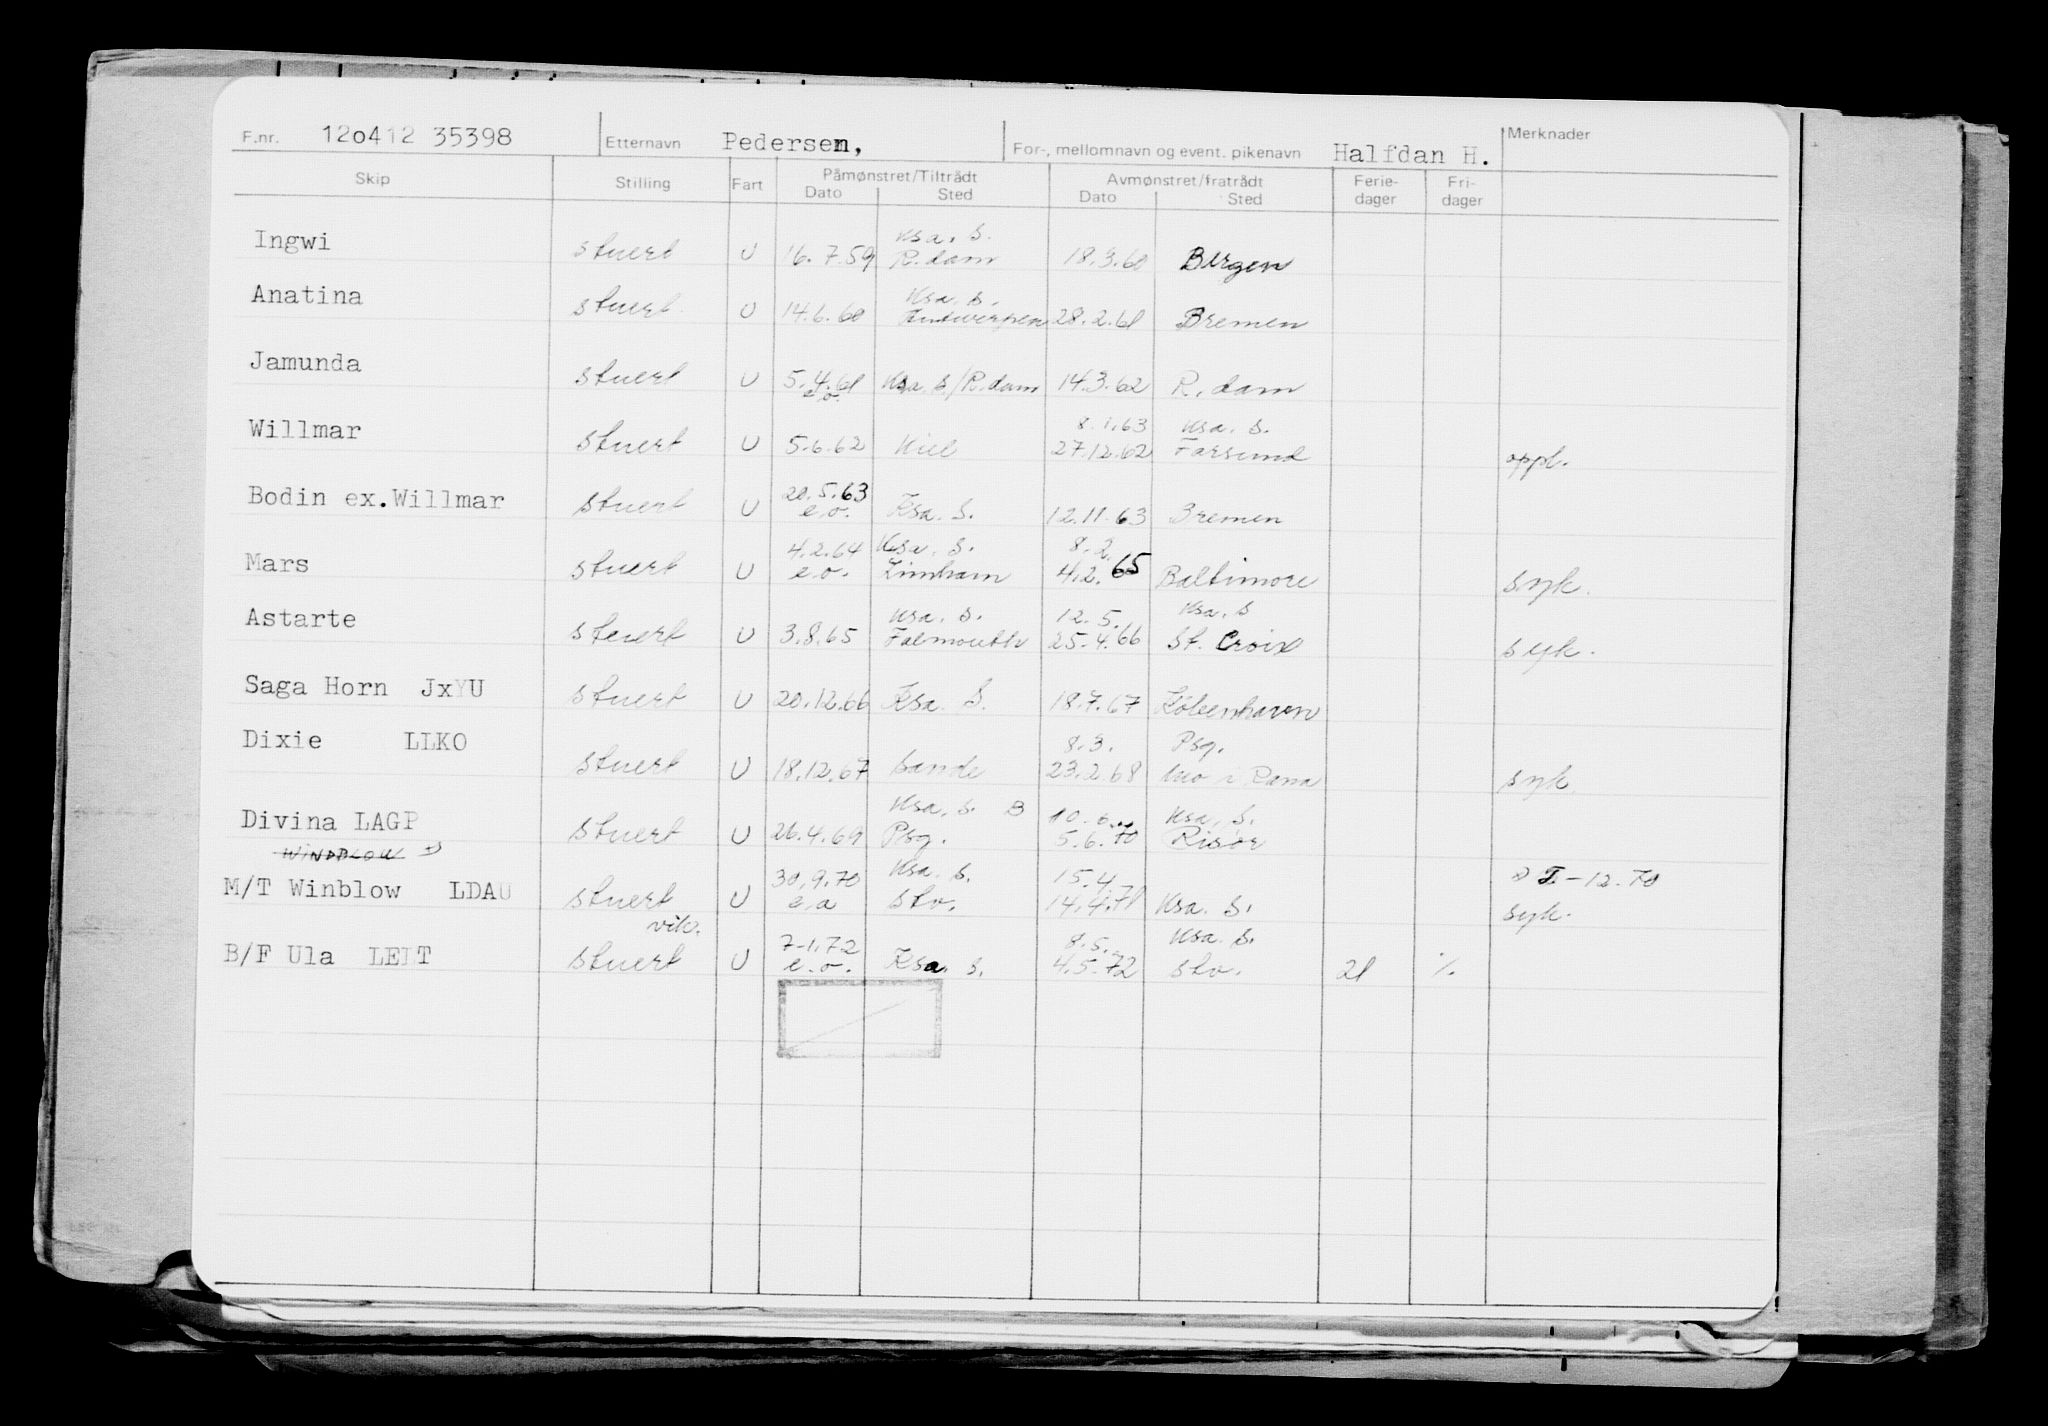 F.nr. 12o412 35398 Etternavn Pedersen, For-, mellomnavn og event. pikenavn Halfdan H. Merknader
Skip Stilling Fart Påmønstret/Tiltrådt Avmønstret/fratrådt Ferie- Fri-
Dato Sted Dato Sted dager dager
Ksa. S.
Ingwi stuert U 16.7.59 R.dam 18.3.60 Bergen
Ksa. S.
Anatina stuert U 14.6.60 Antwerpen 28.2.61 Bremen
Jamunda stuert U 5.4.61 Ksa. S./R.dam 14.3.62 R.dam
e.o.
8.1.63 Ksa. S.
Willmar stuert U 5.6.62 Kiel 27.12.62 Farsund oppl.
20.5.63
Bodin ex.Willmar stuert U e.o. Ksa. S. 12.11.63 Bremen
4.2.64 Ksa. S. 8.2.
Mars stuert U e.o. Limham 4.2.65 Baltimore syk.
Ksa. S. 12.5. Ksa. S
Astarte stuert U 3.8.65 Falmouth 25.4.66 St. Croix syk.
Saga Horn JxYU stuert U 20.12.66 Ksa. S. 18.7.67 København
8.3. Psg.
Dixie LLKO stuert U 18.12.67 Sande 23.2.68 Mo i Rana syk.
Ksa. S. B 10.6. Ksa. S.
Divina LAGP stuert U 26.4.69 Psg. 5.6.70 Risør
30.9.70 Ksa. S. 15.4. -12.70
M/T Winblow LDAU stuert U e.o Sto. 14.4.71 Ksa. S. syk.
vik. 7-1.72 8.5. Ksa. S.
B/F Ula LEIT stuert U e.o. Ksa. S. 4.5.72 Sto. 21 %